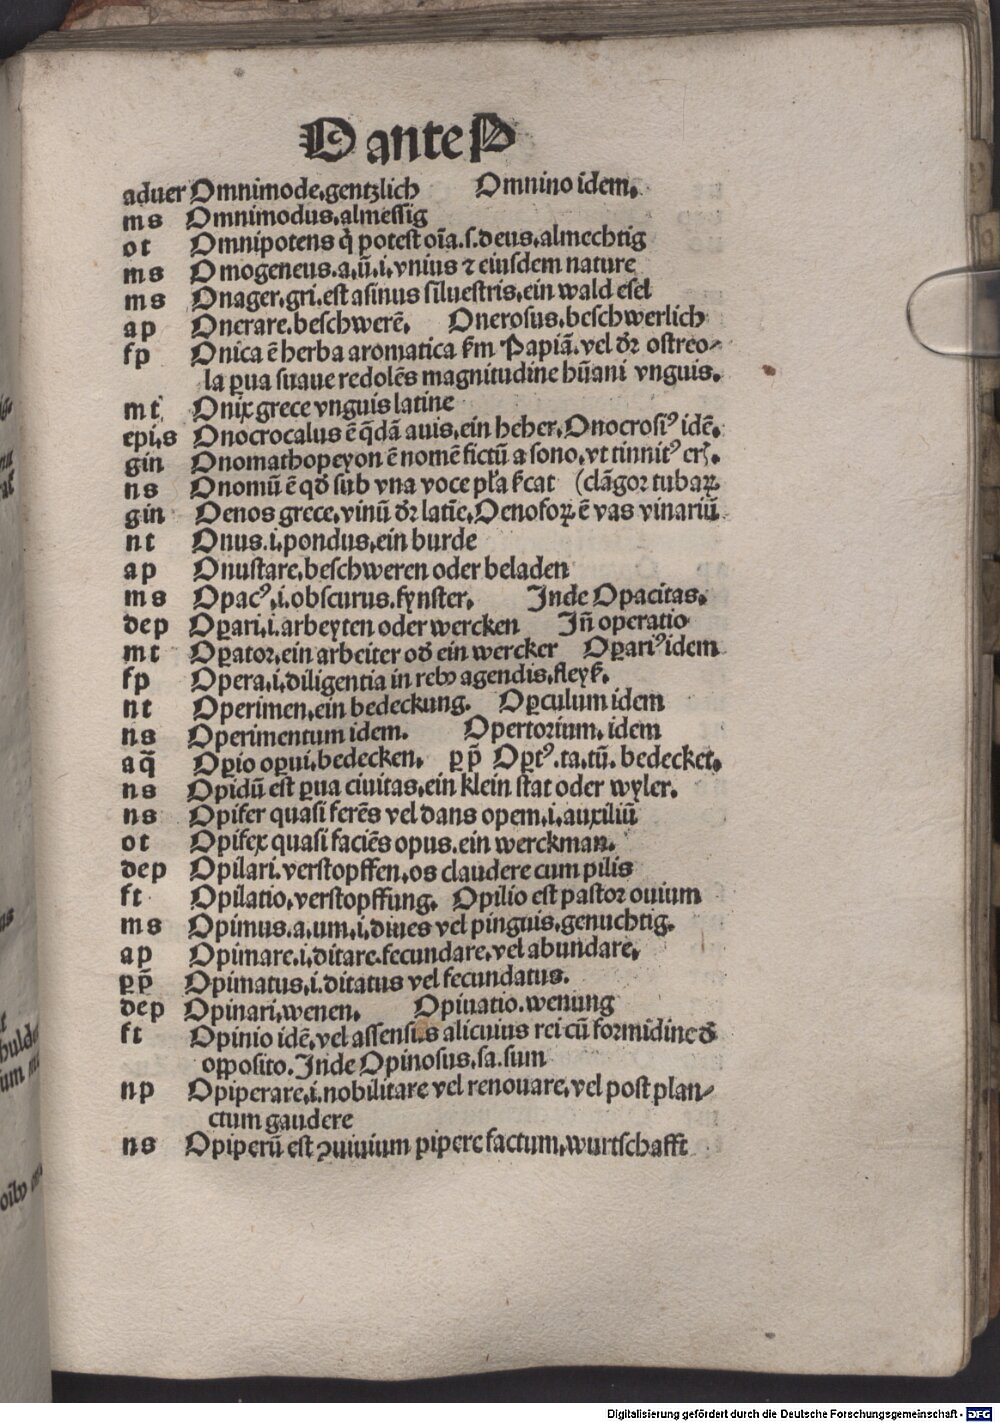 O ante P
aduer Omnimode.gentzlich Omnino idem.
ms Omnimodus.almessig
ot Omnipotens q̇ potest oīa.ſ.deus.almechtig
ms Omogeneus.a.ū.i.vnius ⁊ eiusdem nature
ms Onager.gri.est asinus siluestris.ein wald esel
ap Onerare.beschwerē. Onerosus.beschwerlich
fp Onica ē herba aromatica ẜm Papiā.vel dr̄ ostreo-
la ꝑua suaue redolēs magnitudine hūani vnguis.
mt Onix grece vnguis latine
epi.s Onocrocalus ē q̄dā auis.ein heher.Onocrosiꝰ idē.
gin Onomathopeyon ē nomē fictū a sono.vt tinnitꝰ eris.
ns Onomū ē qđ sub vna voce pła ẜcat (clāgor tubaꝝ.
gin Oenos grece.vinū dr̄ latīe.Oenofoꝝ ē vas vinariū
nt Onus.i.pondus.ein burde
ap Onustare.beschweren oder beladen
ms Opacꝰ.i.obscurus.fynster. Inde Opacitas.
dep Oꝑari.i.arbeyten oder wercken Iñ operatio
mt Oꝑator.ein arbeiter ođ ein wercker Oꝑariꝰ idem
fp Opera.i.diligentia in rebꝰ agendis.fleyß.
nt Operimen.ein bedeckung. Oꝑculum idem
ns Operimentum idem. Opertorium.idem
aq̄ Oꝑio oꝑui.bedecken. ꝑp̄ Oꝑtꝰ.ta.tū.bedecket.
ns Opidū est ꝑua ciuitas.ein klein stat oder wyler.
ns Opifer quasi ferēs vel dans opem.i.auxiliū
ot Opifex quasi faciēs opus.ein werckman.
dep Opilari.verstopffen.os claudere cum pilis
ft Opilatio.verstopffung. Opilio est pastor ouium
ms Opimus.a.um.i.diues vel pinguis.genuchtig.
ap Opimare.i.ditare.fecundare.vel abundare.
ꝑp̄ Opimatus.i.ditatus vel fecundatus.
dep Opinari.wenen. Opiuatio.wenung
ft Opinio idē.vel assensus alicuius rei cū formidine đ
opposito.Inde Opinosus.sa.sum
np Opiperare.i.nobilitare vel renouare.vel post plan-
ctum gaudere
ns Opiperū est ꝯuiuium pipere factum.wurtschafft
Digitalisierung gefördert durch die Deutsche Forschungsgemeinschaft - DFG